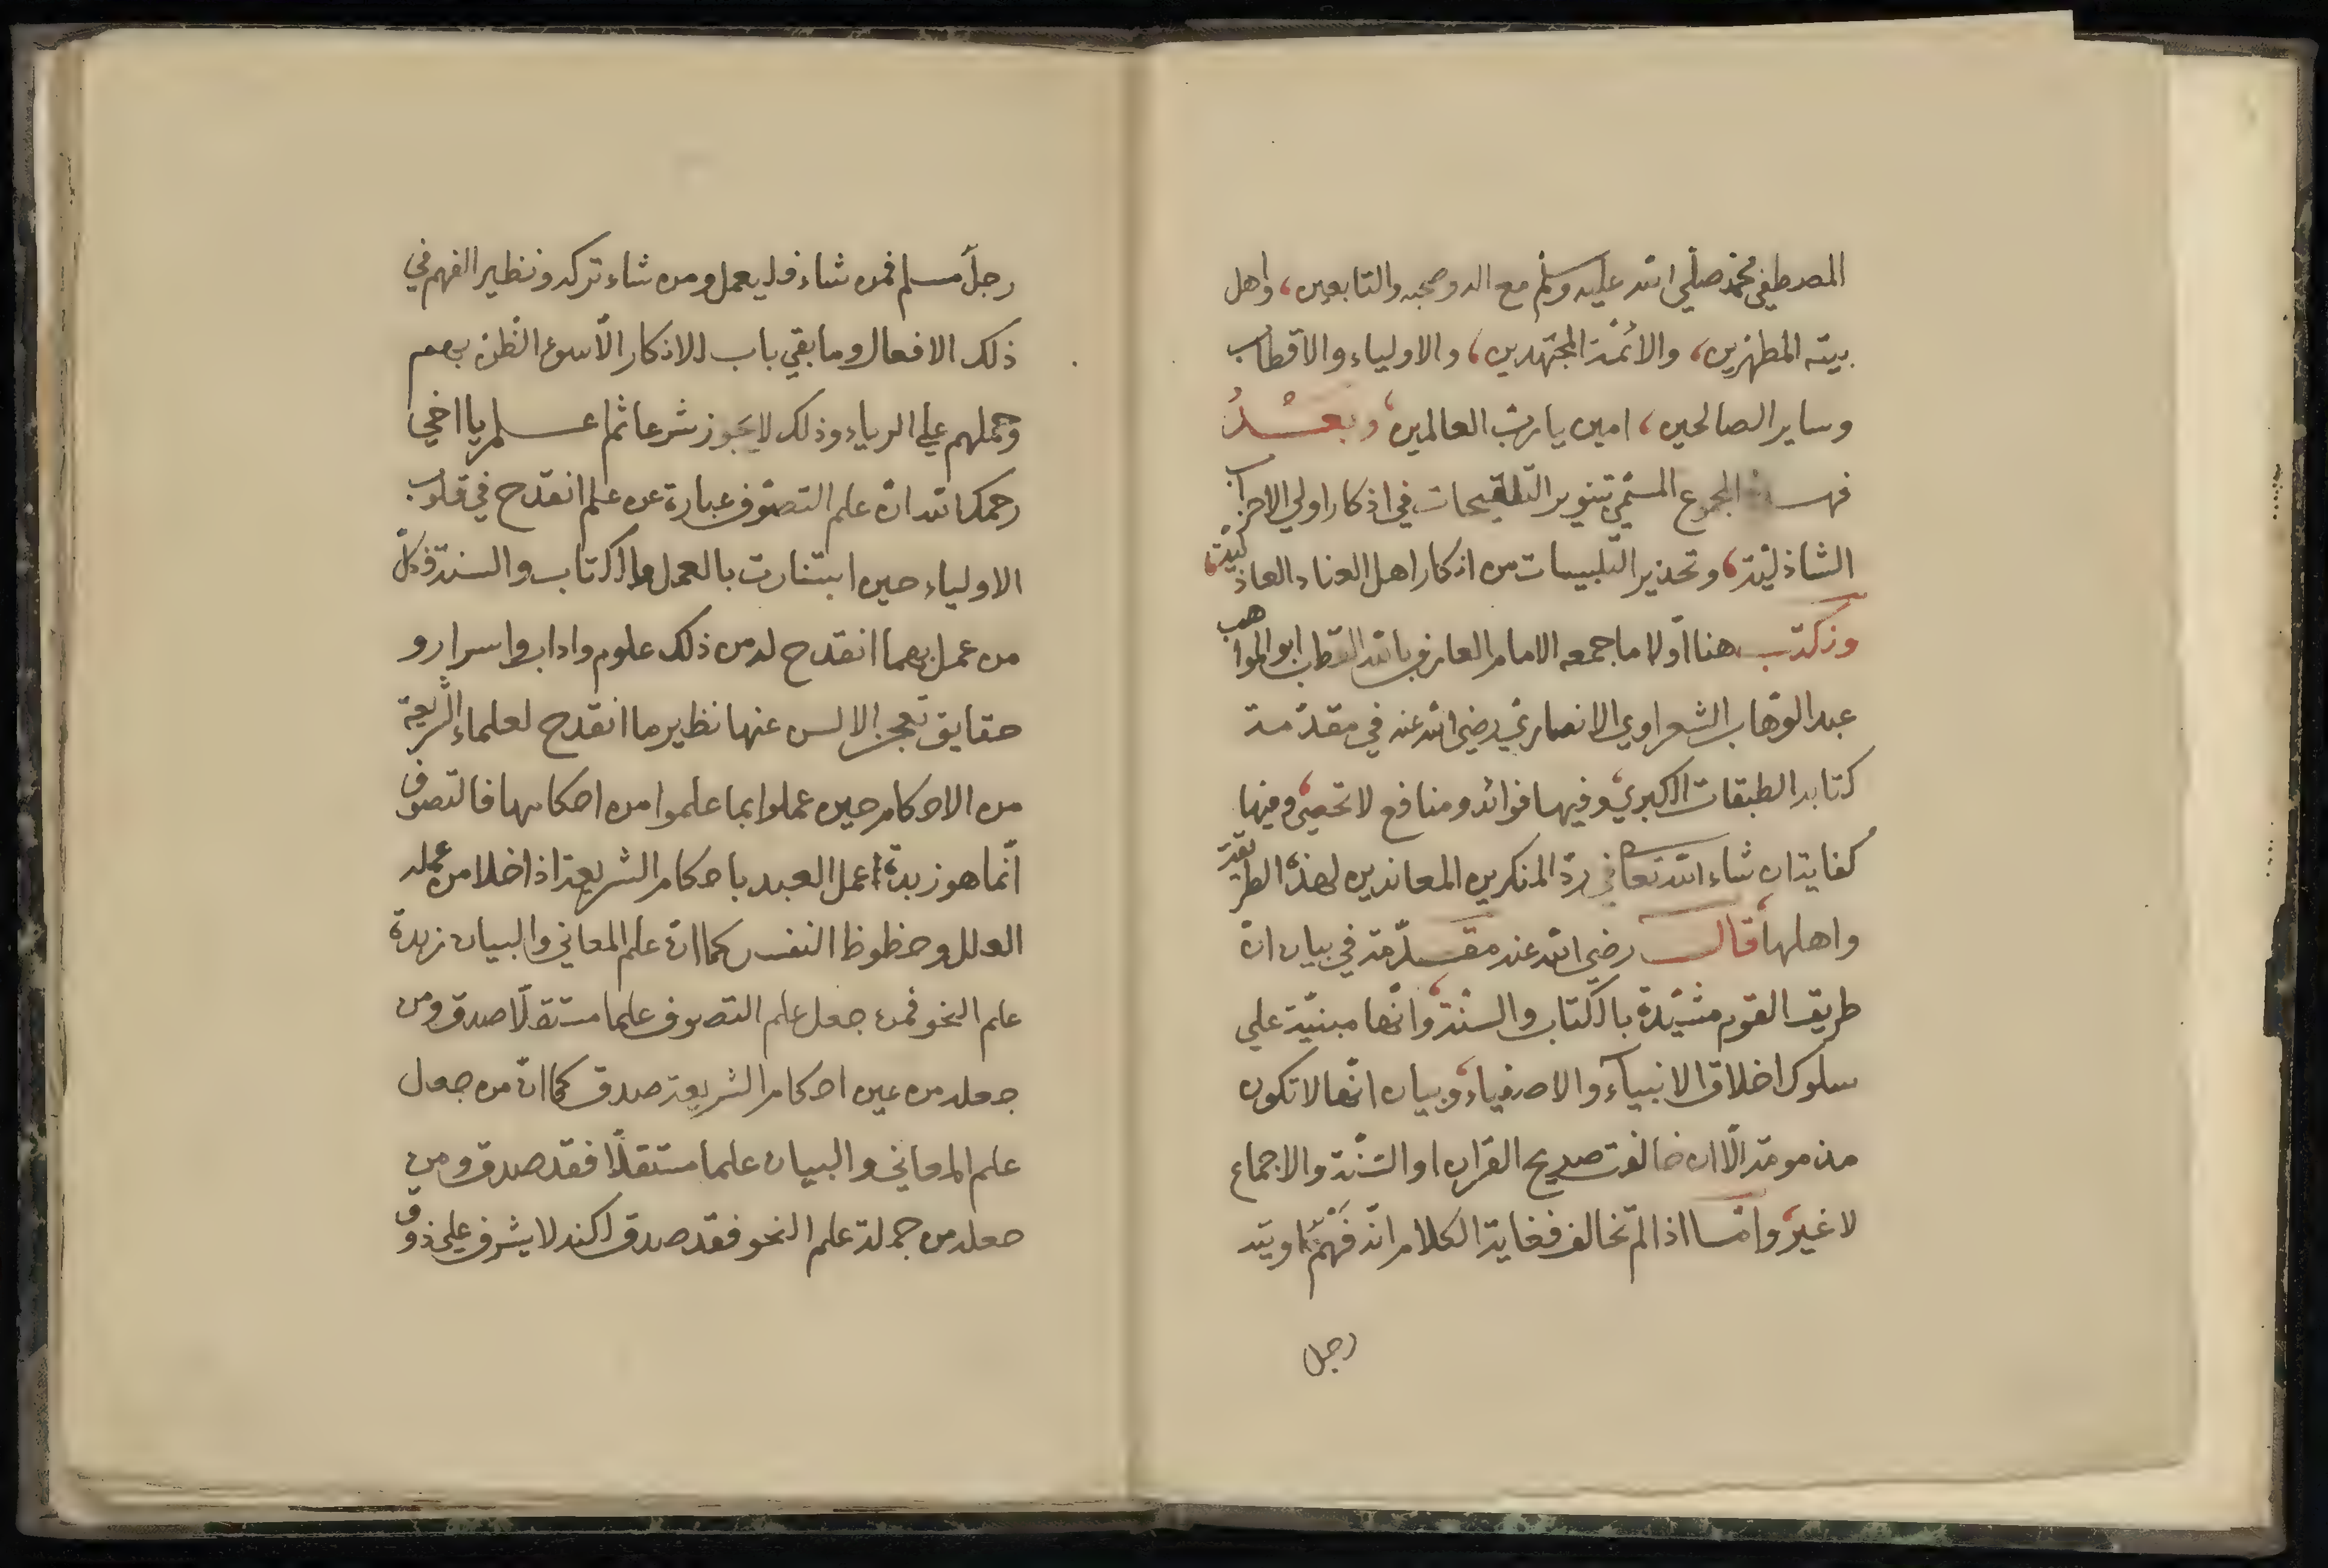 المصطفى محمد صلّي الله عليه وسلّم مع اله وصحبه والتابعين، واهل
بيته المطهّرين، والائمّة المجتهدين، والاولياء والاقطاب
وساير الصالحين، امين يا ربّ العالمين، وبعْدُ
المجموع المسمّي بتنوير التلقيحات في اذكار اولي الاحزاب
الشاذليّة، وتحذير التلبيسات من اذكار اهل العناد العاذ
ونكتب هنا اوّلا ما جمعه الامام العارف بالله القطب ابو المواهب
عبد الوهّاب الشعراوي الانصاريّ رضي الله عنه في مقدّمة
كتابه الطبقات الكبريٰ، وفيها فوائد ومنافع لا تحصى، ومنها
كفاية ان شاء الله تعالي في ردّ المنكرين المعاندين لهذه الطريقة
واهلها، قال رضي الله عنه مقدّمة في بيان انّ
طريق القوم مشيّدة بالكتاب والسنّة، وانّها مبنيّة علي
سلوك اخلاق الانبيآء والاصفياء، وبيان انّها لا تكون
مذمومة الّا ان خالفت صريح القران او السّنّة والاجماع
لا غير، وامّا اذا لم تخالف فغاية الكلام انّه فَهْمٌ اوتيه
رجل
رجل مسلم فمن شاء فليعمل ومن شاء تركه ونظير الفهم في
ذلك الافعال وما بقي باب للانكار الّا سوء الظّن بهم
وحملهم علي الرياء وذلك لا يجوز شرعا ثم اعلم يا اخي
رحمك الله انّ علم التصوّف عبارة عن علم انقدح في قلوب
الاولياء حين استنارت بالعمل بالكتاب والسنة فكلّ
من عمل بهما انقدح له من ذلك علوم واداب واسرار و
حقايق تعجز الالسن عنها نظير ما انقدح لعلماء الشريعة
من الاحكام حين عملوا بما علموا من احكامها فالتصوف
انّما هو زبدة عمل العبد باحكام الشريعة اذا خلا من عمله
العلل وحظوظ النفس كما انّ علم المعاني والبيان زبدة
علم النحو فمن جعل علم التصوف علما مستقلّا صدق ومن
جعله من عين احكام الشريعة صدق كما انّ من جعل
علم المعاني والبيان علما مستقلّا فقد صدق ومن
جعله من جملة علم النحو فقد صدق لكنه لا يشرف علي ذوق